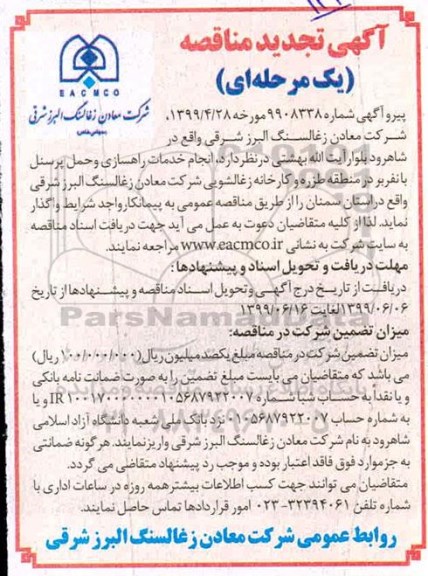 آگهی تجدید مناقصه
(یک مرحله‌ای)
EACMCO
شرکت معادن زغالسنگ البرز شرقی
(سهامی خاص)
پیرو آگهی شماره ۹۹۰۸۳۳۸ مورخه ۱۳۹۹/۴/۲۸،
شرکت معادن زغالسنگ البرز شرقی واقع در
شاهرود بلوار آیت الله بهشتی در نظر دارد، انجام خدمات راهسازی و حمل پرسنل
با نفربر در منطقه طزره و کارخانه زغالشویی شرکت معادن زغالسنگ البرز شرقی
واقع در استان سمنان را از طریق مناقصه عمومی به پیمانکار واجد شرایط واگذار
نماید. لذا از کلیه متقاضیان دعوت به عمل می آید جهت دریافت اسناد مناقصه
به سایت شرکت به نشانی www.eacmco.ir مراجعه نمایند.
مهلت دریافت و تحویل اسناد و پیشنهادها:
دریافت از تاریخ درج آگهی و تحویل اسناد مناقصه و پیشنهادها از تاریخ
۱۳۹۹/۰۶/۰۶ لغایت ۱۳۹۹/۰۶/۱۶
میزان تضمین شرکت در مناقصه:
میزان تضمین شرکت در مناقصه مبلغ یکصد میلیون ریال (۱۰۰/۰۰۰/۰۰۰ ریال)
می باشد که متقاضیان می بایست مبلغ تضمین را به صورت ضمانت نامه بانکی
و یا نقداً به حساب شبا شماره و یا
به شماره حساب ۰۱۰۵۶۸۷۹۲۲۰۰۷ نزد بانک ملی شعبه دانشگاه آزاد اسلامی
شاهرود به نام شرکت معادن زغالسنگ البرز شرقی واریز نمایند. هرگونه ضمانتی
به جز موارد فوق فاقد اعتبار بوده و موجب رد پیشنهاد متقاضی می گردد.
متقاضیان می توانند جهت کسب اطلاعات بیشتر همه روزه در ساعات اداری با
شماره تلفن ۳۲۳۹۴۰۶۱-۰۲۳ امور قراردادها تماس حاصل نمایند.
روابط عمومی شرکت معادن زغالسنگ البرز شرقی